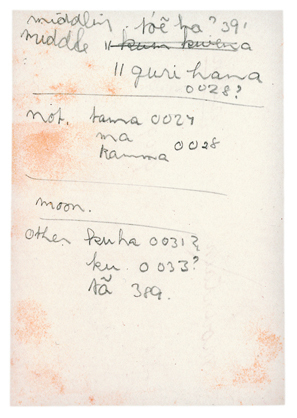 middling . tóẽ ha? 39'
middle || kum kwena
|| guri-hana
0028?
not. tama 0027
ma
kamma 0028
moon.
other kuha 0031?
ku. 0033?
tã 389.